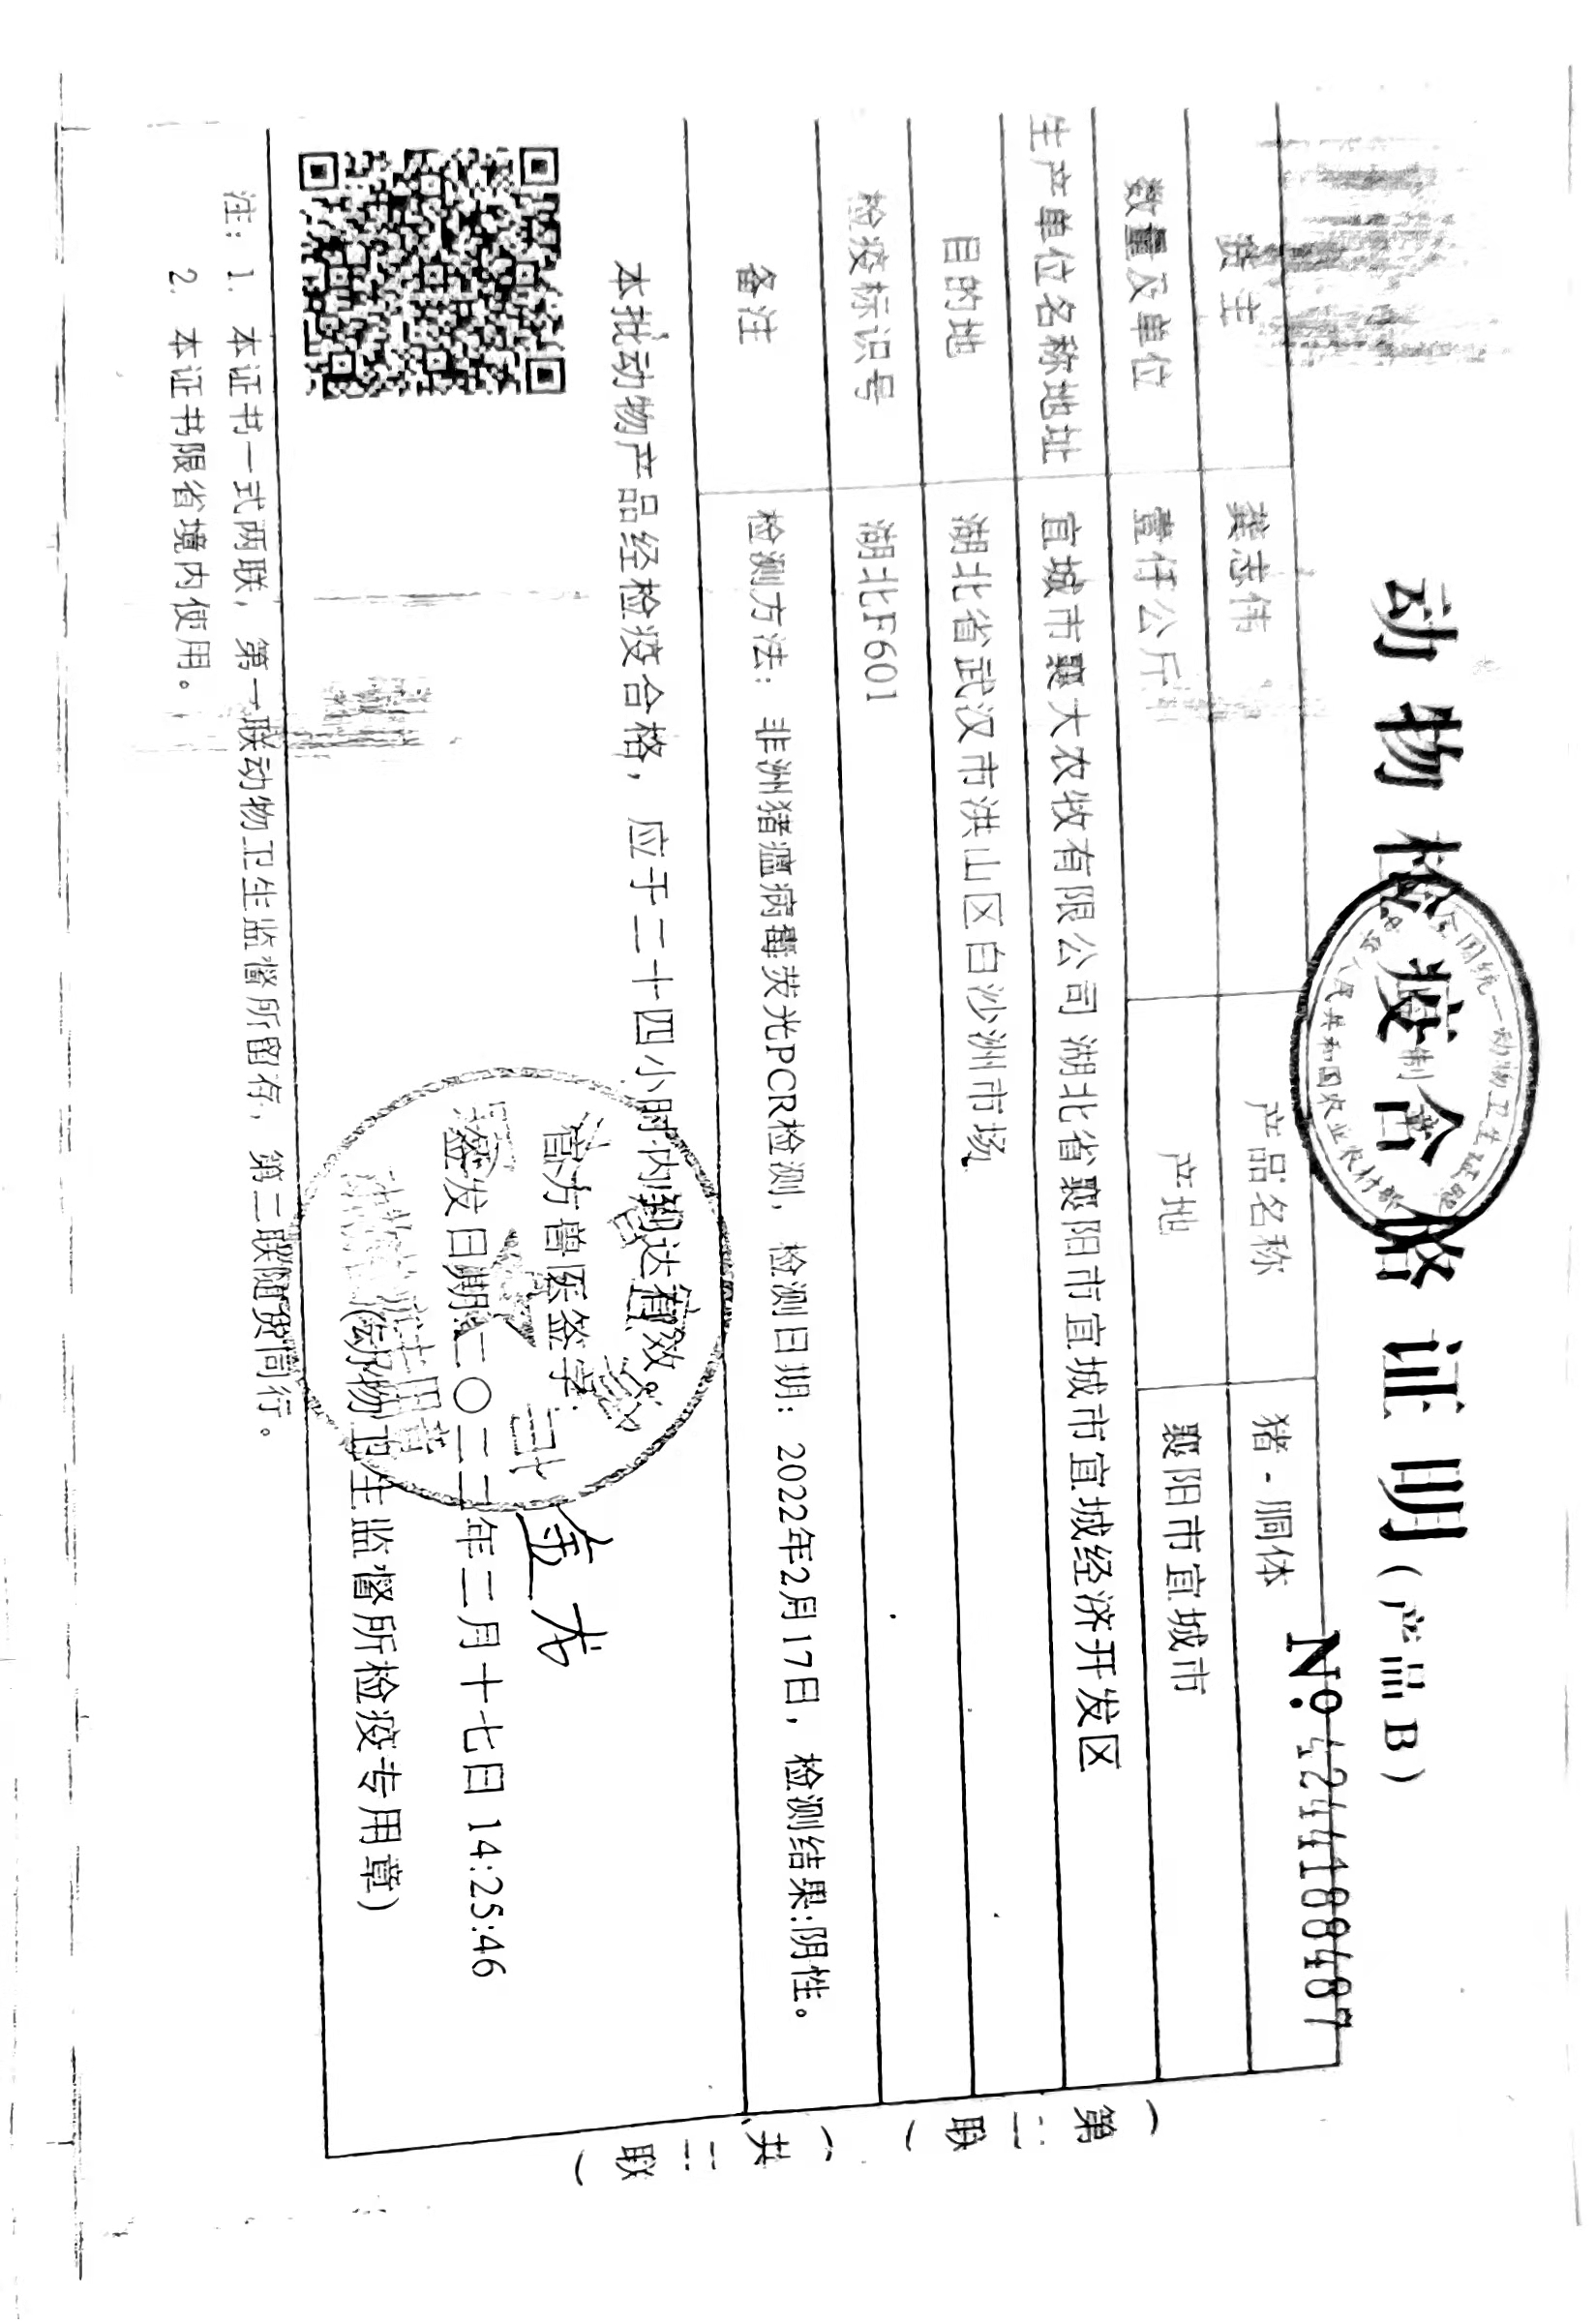 动物检疫合格证明（产品B）
全国统一动物卫生监督
中华人民共和国农业农村部
№.4244188487
货主 龚志伟 产品名称 猪-胴体
数量及单位 壹仟公斤 产地 襄阳市宜城市
生产单位名称地址 宜城市襄大农牧有限公司 湖北省襄阳市宜城市宜城经济开发区
目的地 湖北省武汉市洪山区白沙洲市场
检疫标识号 湖北F601
备注 检测方法：非洲猪瘟病毒荧光PCR检测，检测日期：2022年2月17日，检测结果:阴性。
本批动物产品经检疫合格，应于二十四小时内到达有效。
官方兽医签字:
签发日期:二〇二二年二月十七日 14:25:46
(动物卫生监督所检疫专用章)
注：1. 本证书一式两联，第一联动物卫生监督所留存，第二联随货同行。
2. 本证书限省境内使用。
（第二联）
（共二联）